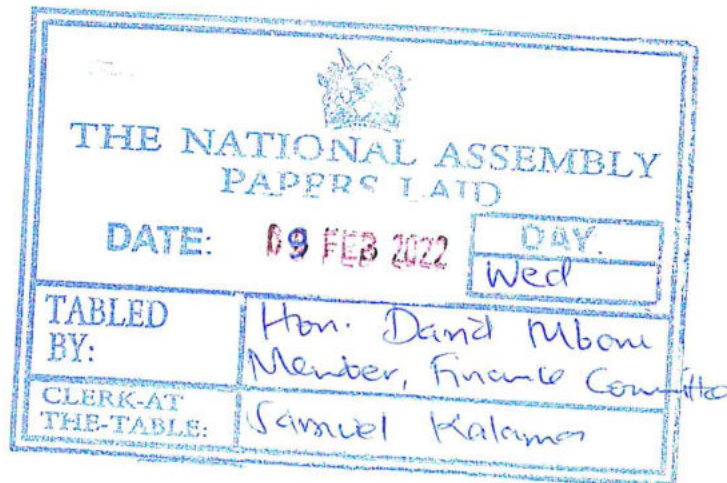 THE NATIONAL ASSEMBLY
PAPERS LAID
DATE: 09 FEB 2022
DAY.
Wed
TABLED
BY:
Hon. David Mboni
Member, Finance Committee
CLERK-AT
THE-TABLE:
Samuel Kalama